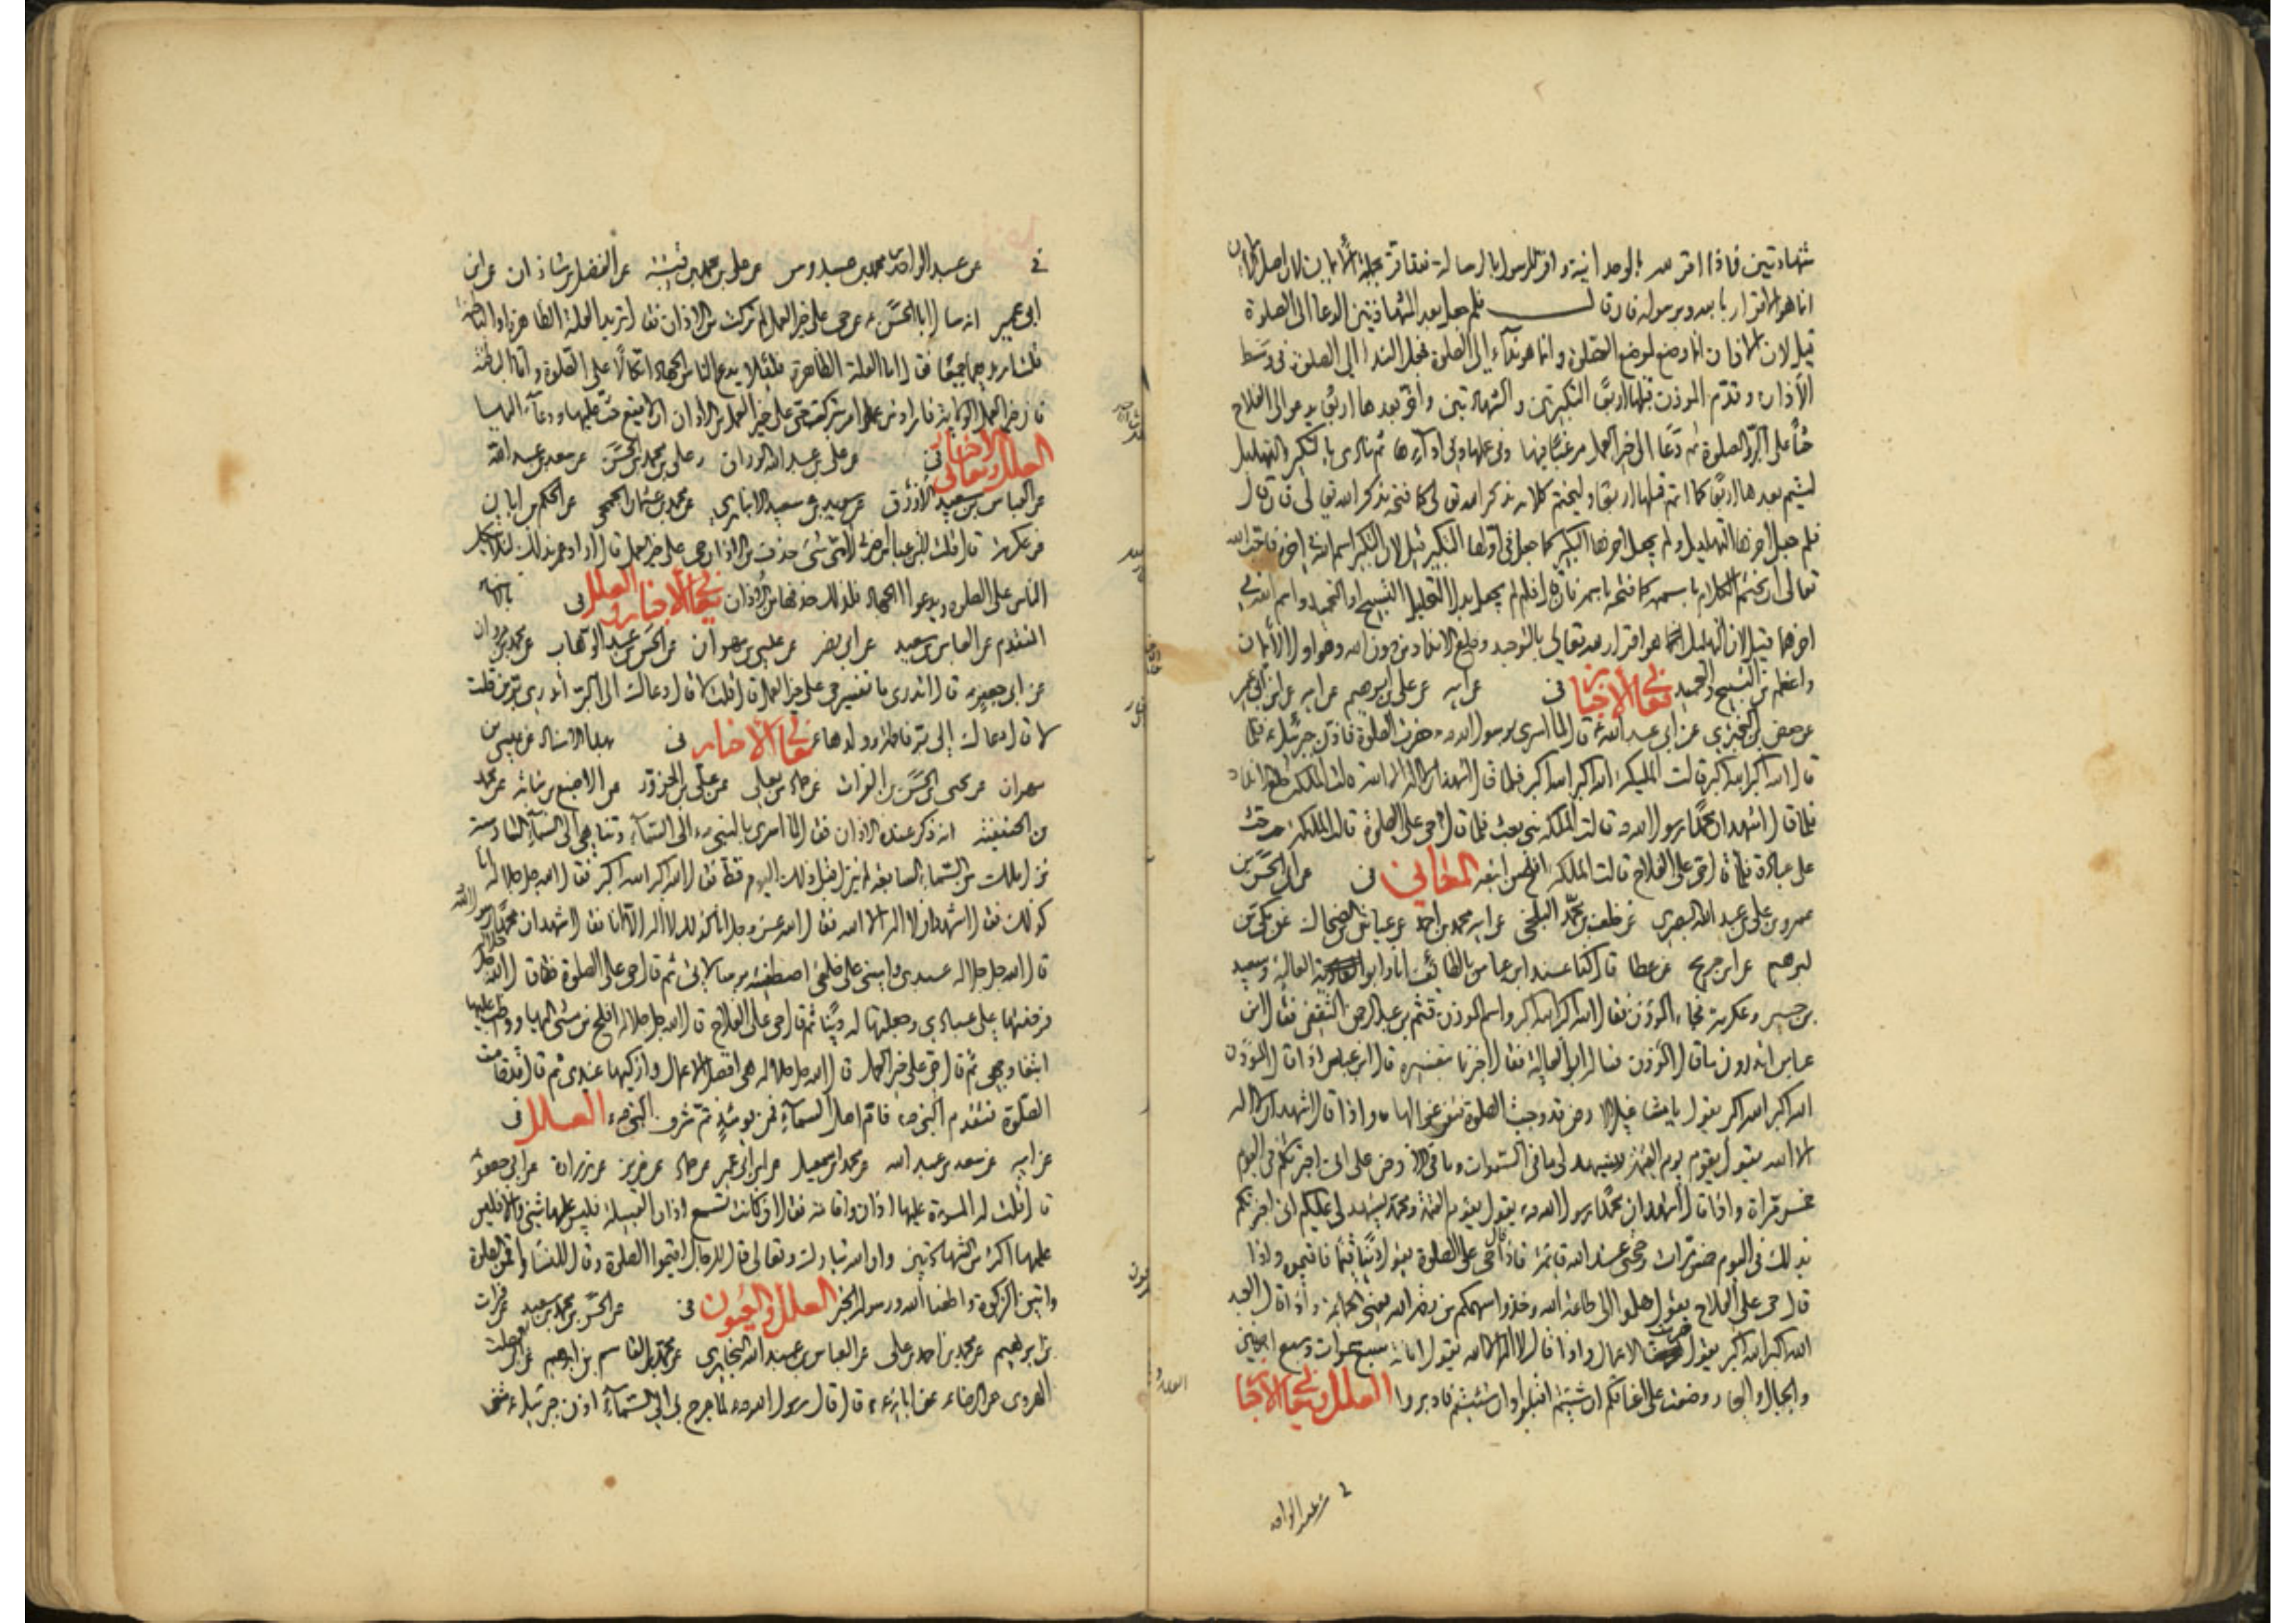 شهادتين فاذا اقر لله بالوحدانية واقر للرسول بالرسالة فقد اقر بجملة الايمان لان اصل الايمان
انما هو الاقرار بالله وبرسوله فان قال فلم جعل بعد الشهادتين الدعا الى الصلوة
قيل لان الاذان انما وضع لموضع الصلوة وانما هو ندآء الى الصلوة فجعل الندا الى الصلوة في وسط
الاذان وقدم المؤذن قبلها اربعا التكبيرتين والشهادتين واخر بعدها اربعا يدعو الى الفلاح
حثا على البر والصلوة ثم دعا الى خير العمل مرغبا فيها وفي عملها وفي ادآءها ثم نادى بالتكبير والتهليل
ليتم بعدها اربعا كما اتم قبلها اربعا وليختم كلامه بذكر الله تعالى كما فتحه بذكر الله تعالى فان قال
فلم جعل اخرها التهليل ولم يجعل اخرها التكبير كما جعل في اولها التكبير قيل لان التكبير اسم الله في اخره فاحب الله
تعالى ان يختم الكلام باسمه كما فتحه باسمه فان قال فلم لم يجعل بدل التهليل التسبيح او التحميد واسم الله في
اخرهما قيل لان التهليل انما هو اقرار لله تعالى بالتوحيد وخلع الانداد من دون الله وهو اول الايمان
واعظم من التسبيح والتحميد معاني الاخبار في عن ابيه عن علي بن ابرهيم عن ابيه عن ابن ابي عمير
عن حفص بن البختري عن ابي عبد الله ع قال لما اسري برسول الله ص حضرت الصلوة فاذن جبرئيل ع فلما
قال الله اكبر الله اكبر قالت المليكة الله اكبر الله اكبر فلما قال اشهد ان لا اله الا الله قالت الملئكة خلع الانداد
فلما قال اشهد ان محمدا رسول الله ص قالت الملئكة نبي بعث فلما قال حي على الصلوة قالت الملئكة حث
على عبادة فلما قال حي على الفلاح قالت الملئكة افلح من اتبعه المعاني في عن ابي الحسن بن
عمرو بن علي بن عبد الله البصري عن خلف بن محمد البلخي عن ابيه محمد بن احمد عن عياش بن الضحاك عن مكي بن
ابرهيم عن ابن جريح عن عطا قال كنا عند ابن عباس بالطائف انا وابو العالية وسعيد
بن جبير وعكرمة فجاء المؤذن فقال الله اكبر الله اكبر واسم المؤذن قثم بن عبد الرحمن الثقفي فقال ابن
عباس اتدرون ما قال المؤذن فسأله ابو العالية فقال اخبرنا بتفسيره قال ابن عباس اذا قال المؤذن
الله اكبر الله اكبر يقول يا مشاغيل الارض قد وجبت الصلوة فتفرغوا لها واذا قال اشهد ان لا اله
الا الله يقول يقوم يوم القيمة ويشهد لي ما في السموات وما في الارض على اني اخبرتكم في اليوم
خمس مرات واذا قال اشهد ان محمدا رسول الله ص يقول يقوم القيمة ومحمد يشهد لي عليكم اني اخبرتكم
بذلك في اليوم خمس مرات وحجتي عند الله قائمة فاذا قال حي على الصلوة يقول دينا قيما فاقيموه واذا
قال حي على الفلاح يقول هلموا الى طاعة الله وخذوا سهمكم من رحمة الله يعني الجماعة واذا قال العبد
الله اكبر الله اكبر يقول حرمت الاعمال واذا قال لا اله الا الله يقول امانة سبع سموات وسبع ارضين
والجبال والبحار وضعت على اعناقكم ان شئتم اقبلوا وان شئتم فادبروا العلل ومعاني الاخبار
في عبد الواحد
في عن عبد الواحد بن محمد بن عبدوس عن علي بن محمد بن قتيبة عن الفضل بن شاذان عن ابن
ابي عمير انه سال ابا الحسن ع عن حي على خير العمل لم تركت من الاذان فقال تريد العلة الظاهرة او الباطنة
قلت اريدهما جميعا فقال اما العلة الظاهرة فلئلا يدع الناس الجهاد اتكالا على الصلوة واما الباطنة
فان خير العمل الولاية فاراد من امر بترك حي على خير العمل من الاذان ان لا يقع حث عليها ودعآء اليها
العلل ومعاني الاخبار في عن علي بن عبد الله الوراق وعلي بن محمد بن الحسن عن سعد بن عبد الله
عن العباس بن سعيد الازرق عن سويد بن سعيد الانباري عن محمد بن عثمان الجمحي عن الحكم بن ابان
عن عكرمة قال قلت لابن عباس اخبرني لاي شيء حذف من الاذان حي على خير العمل قال اراد عمر بذلك لئلا يتكل
الناس على الصلوة ويدعوا الجهاد فلذلك حذفها من الاذان معاني الاخبار والعلل في بالاسناد
المتقدم عن العباس بن سعيد عن ابي نصر عن عيسى بن مهران عن الحسن بن عبد الوهاب عن محمد بن مروان
عن ابي جعفر ع قال اتدري ما تفسير حي على خير العمل قال قلت لا قال دعاك الى البر اتدري بر من قلت
لا قال دعاك الى بر فاطمة وولدها ع معاني الاخبار في بهذا الاسناد عن عيسى بن
مهران عن يحيى بن الحسن بن الفرات عن حماد بن يعلى عن علي بن الحزور عن الاصبغ بن نباتة عن محمد
بن الحنفية انه ذكر عنده الاذان فقال لما اسري بالنبي ص الى السمآء وتناهى الى السمآء السادسة
نزل ملك من السماء السابعة لم ينزل قبل ذلك اليوم قط فقال الله اكبر الله اكبر فقال الله جل جلاله انا
كذلك فقال اشهد ان لا اله الا الله فقال الله عز وجل انا كذلك لا اله الا انا فقال اشهد ان محمدا رسول الله
قال الله جل جلاله عبدي واميني على خلقي اصطفيته برسالاتي ثم قال حي على الصلوة فقال الله جل جلاله
فرضتها على عبادي وجعلتها لي دينا ثم قال حي على الفلاح قال الله جل جلاله افلح من مشى اليها وواظب عليها
ابتغاء وجهي ثم قال حي على خير العمل قال الله جل جلاله هي افضل الاعمال وازكيها عندي ثم قال قد قامت
الصلوة فتقدم النبي ص فام اهل السمآء فمن يومئذ تم شرف النبي ص العلل في
عن ابيه عن سعد بن عبد الله عن محمد بن اسمعيل عن ابن ابي عمير عن حماد عن حريز عن زرارة عن ابي جعفر ع
قال قلت له المرءة عليها اذان واقامة فقال ان كانت تسمع اذان القبيلة فليس عليها شيء والا فليس
عليها اكثر من الشهادتين وان الله تبارك وتعالى قال للرجال اقيموا الصلوة وقال للنسا واقمن الصلوة
واتين الزكوة واطعن الله ورسوله الخبر العلل والعيون في عن الحسن بن محمد بن سعيد عن فرات
بن ابرهيم عن محمد بن احمد بن علي عن العباس بن عبد الله البخاري عن محمد بن القاسم بن ابرهيم عن ابي الصلت
الهروي عن الرضا ع عن ابائه ع قال قال رسول الله ص لما عرج بي الى السمآء اذن جبرئيل ع مثنى